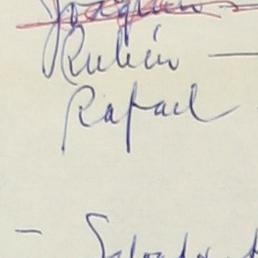 Joaquín
Rubén —
Rafael
– Salvador